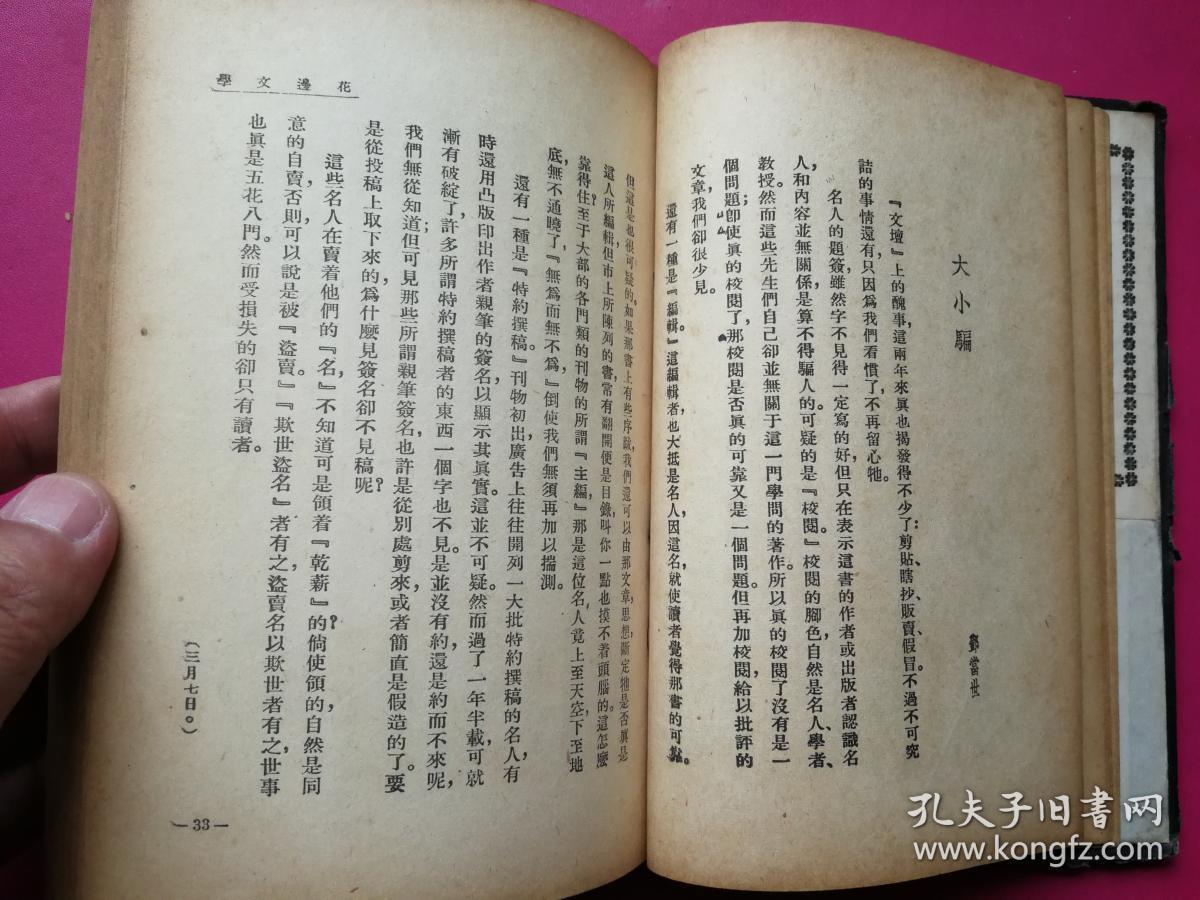 大小騙
鄧當世
『文壇』上的醜事，這兩年來眞也揭發得不少了：剪貼，瞎抄，販賣，假冒。不過不可究
詰的事情還有，只因爲我們看慣了，不再留心牠。
名人的題簽，雖然字不見得一定寫的好，但只在表示這書的作者或出版者認識名
人，和內容並無關係，是算不得騙人的。可疑的是『校閱』。校閱的脚色，自然是名人，學者，
教授。然而這些先生們自己卻並無關于這一門學問的著作。所以眞的校閱了沒有是一
個問題；卽使眞的校閱了，那校閱是否眞的可靠又是一個問題。但再加校閱，給以批評的
文章，我們卻很少見。
還有一種是『編輯』。這編輯者，也大抵是名人，因這名，就使讀者覺得那書的可靠。
但這是也很可疑的。如果那書上有些序跋，我們還可以由那文章，思想，斷定牠是否眞是
這人所編輯，但市上所陳列的書，常有翻開便是目錄，叫你一點也摸不着頭腦的。這怎麼
靠得住？至于大部的各門類的刊物的所謂『主編』，那是這位名人竟上至天空，下至地
底，無不通曉了，『無爲而無不爲』，倒使我們無須再加以揣測。
還有一種是『特約撰稿』。刊物初出，廣告上往往開列一大批特約撰稿的名人，有
時還用凸版印出作者親筆的簽名，以顯示其眞實。這並不可疑。然而過了一年半載，可就
漸有破綻了，許多所謂特約撰稿者的東西一個字也不見。是並沒有約，還是約而不來呢，
我們無從知道；但可見那些所謂親筆簽名，也許是從別處剪來，或者簡直是假造的了。要
是從投稿上取下來的，爲什麼見簽名卻不見稿呢？
這些名人在賣着他們的『名』，不知道可是領着『乾薪』的？倘使領的，自然是同
意的自賣，否則，可以說是被『盜賣』。『欺世盜名』者有之，盜賣名以欺世者又有之，世事
也眞是五花八門。然而受損失的卻只有讀者。
（三月七日。）
花邊文學
—33—
孔夫子旧書网
www.kongfz.com